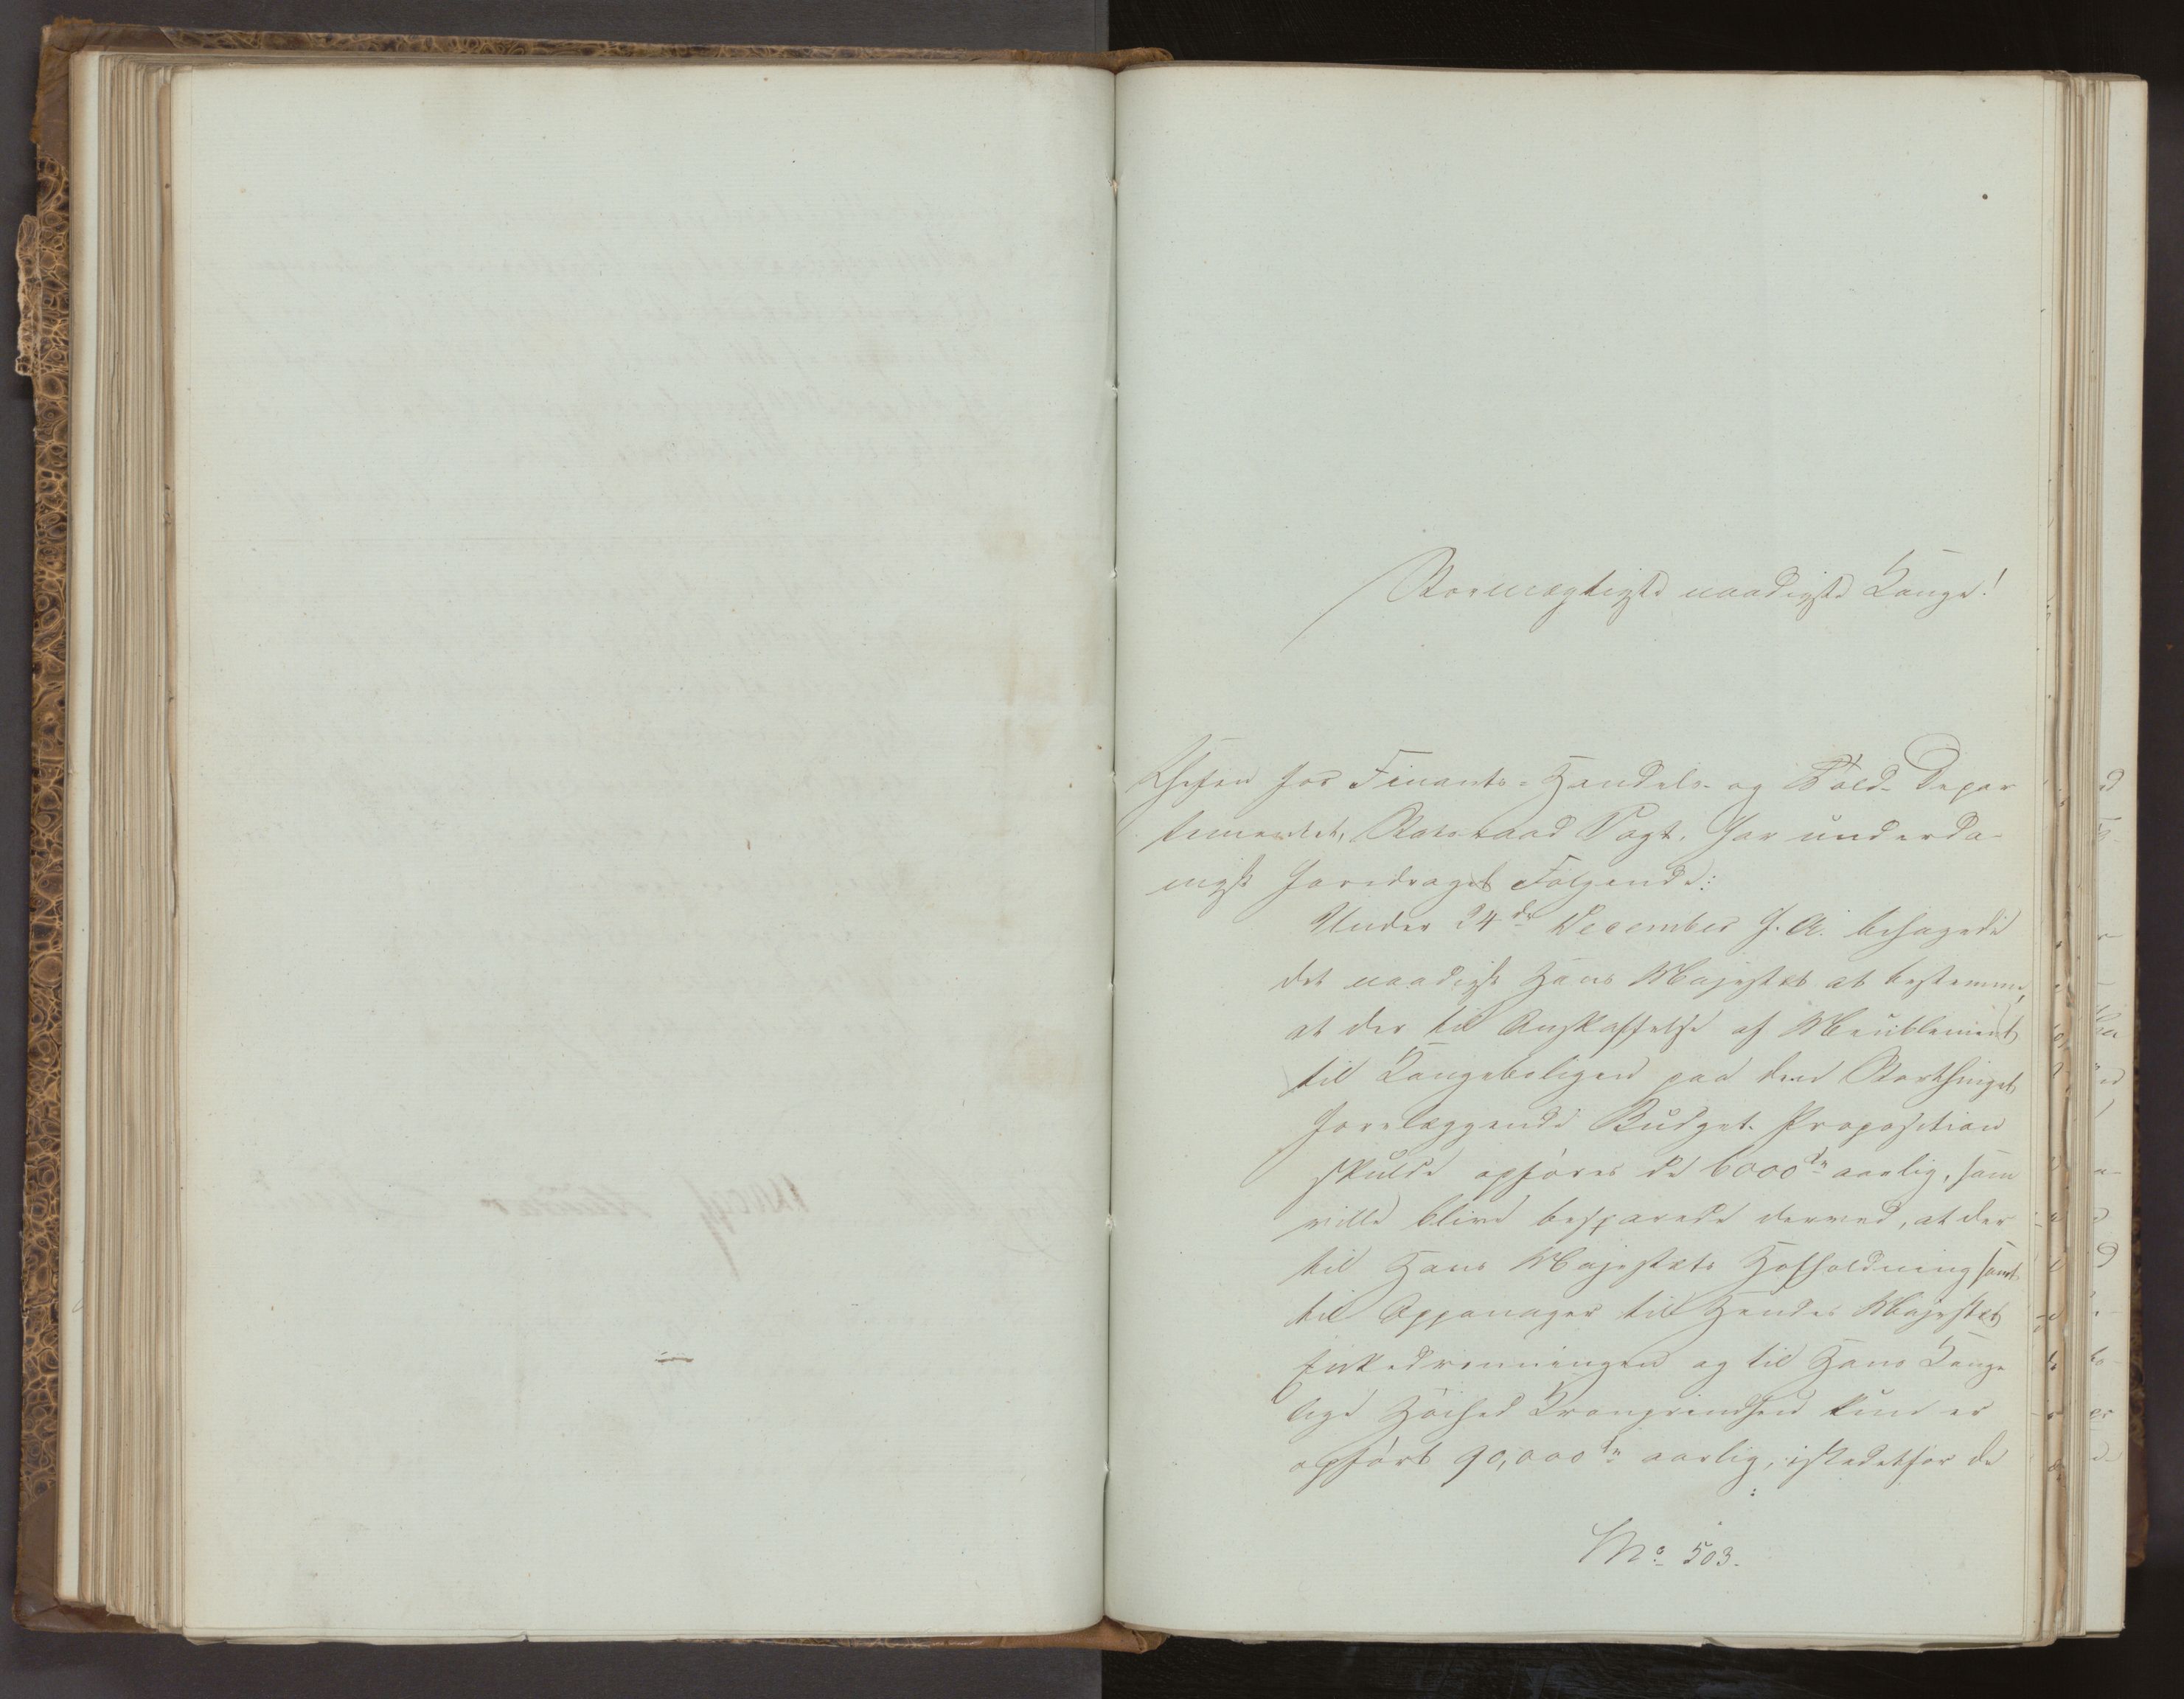 Stormægtigste naadigste Konge!
Chefen for Finants- Handels- og Told- Depar
tementet, Statsraad Vogt, har underda-
nigst foredraget Følgende:
Under 24de December f. A. behagede
det naadigst Hans Majestæt at bestemme,
at der til Anskaffelse af Meublement
til Kongeboligen paa den Storthinget
forelæggende Budget-Proposition
skulde opføres de 6000 Spd aarlig, som
ville blive besparede derved, at der
til Hans Majestæts Hofholdning samt
til Appanager til Hendes Majestæt
Enkedronningen og til Hans Konge
lige Höihed Kronprindsen kun er
opført 90,000 Spd aarlig, istedetfor de
No 503.